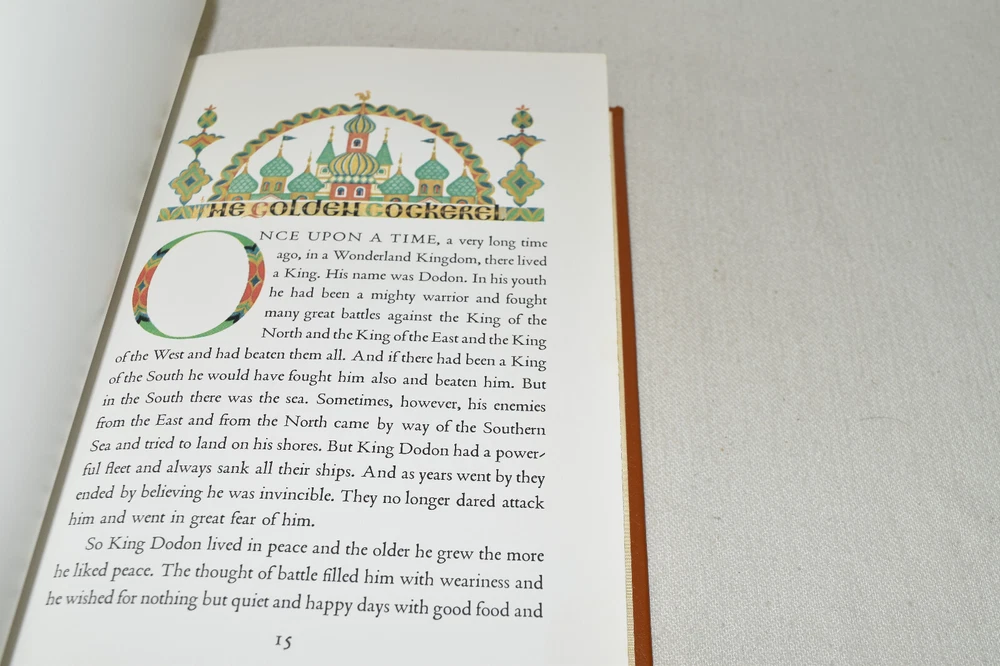 THE GOLDEN COCKEREL
ONCE UPON A TIME, a very long time
ago, in a Wonderland Kingdom, there lived
a King. His name was Dodon. In his youth
he had been a mighty warrior and fought
many great battles against the King of the
North and the King of the East and the King
of the West and had beaten them all. And if there had been a King
of the South he would have fought him also and beaten him. But
in the South there was the sea. Sometimes, however, his enemies
from the East and from the North came by way of the Southern
Sea and tried to land on his shores. But King Dodon had a power-
ful fleet and always sank all their ships. And as years went by they
ended by believing he was invincible. They no longer dared attack
him and went in great fear of him.
So King Dodon lived in peace and the older he grew the more
he liked peace. The thought of battle filled him with weariness and
he wished for nothing but quiet and happy days with good food and
15